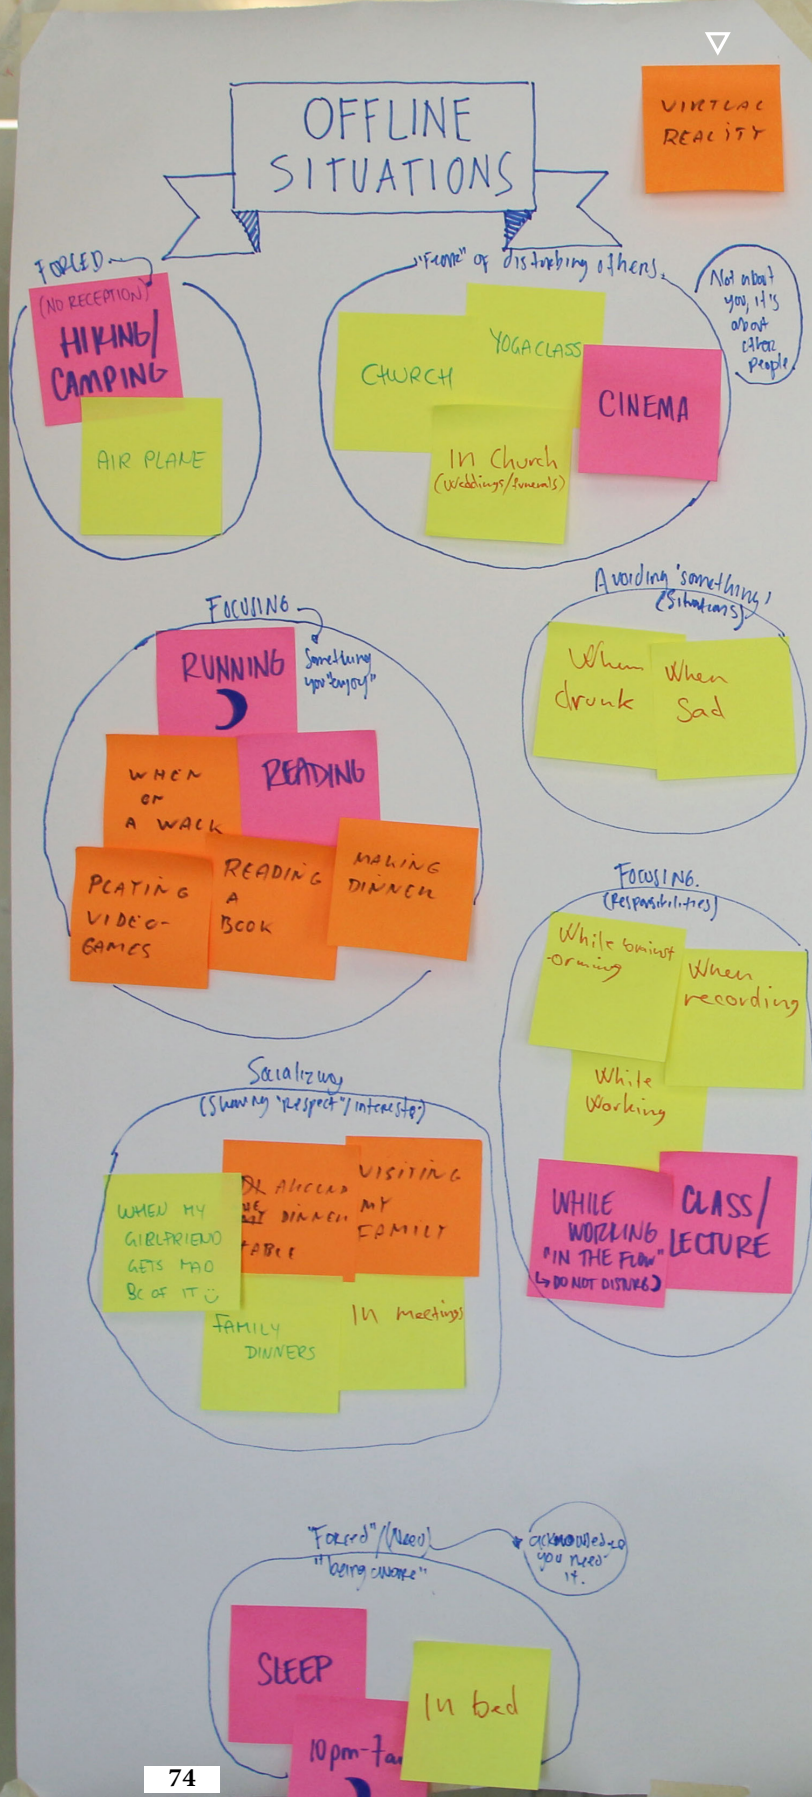 VIRTUAL
REALITY
OFFLINE
SITUATIONS
FORCED
(NO RECEPTION)
HIKING/
CAMPING
AIR PLANE
of disturbing others.
Not about
you, it's
about
other
people.
CHURCH
YOGA CLASS
CINEMA
In Church
(Weddings/funerals)
FOCUSING
Something
you "enjoy"
RUNNING
WHEN
ON
A WALK
READING
PLAYING
VIDEO-
GAMES
READING
A
BOOK
MAKING
DINNER
Avoiding 'something'
(Situations)
When
drunk
When
Sad
FOCUSING.
(Responsibilities)
While brainst
-orming
When
recording
While
Working
WHILE
WORKING
"IN THE FLOW"
(↳ DO NOT DISTURB)
CLASS/
LECTURE
Socializing
(Showing "Respect"/interests)
WHEN MY
GIRLFRIEND
GETS MAD
BC OF IT
DINNER
TABLE
VISITING
MY
FAMILY
FAMILY
DINNERS
In meetings
"Forced"/(Need)
"being aware"
you need
it.
SLEEP
10pm-7a
In bed
74